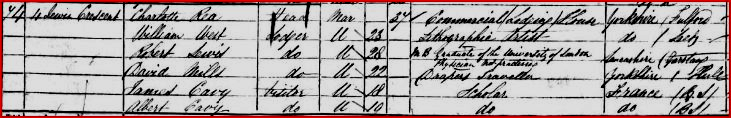 74 4 Lewis Crescent Charlotte Rea Head Mar 37 Commercial Lodging House Yorkshire
William West Lodger U 23 Lithographic Artist do
Robert Lewis do U 28 M B Graduate of the University of London
Physician not practising
David Mills do U 22 Drapers Traveller Yorkshire Hull
James Cavy visitor U 18 Scholar France B.S
Albert Cavy do U 10 do do B.S